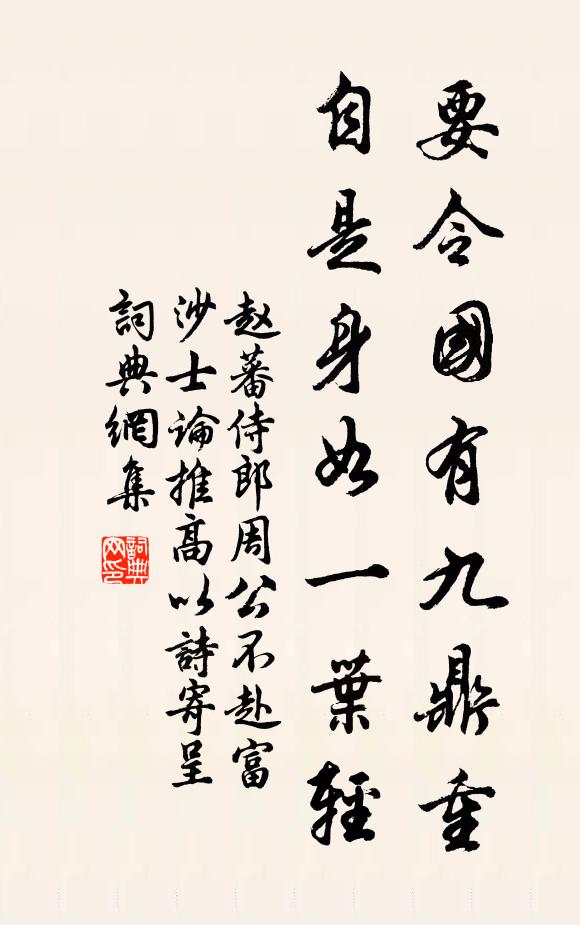 要令國有九鼎重
自是身如一葉輕
赵蕃侍郎周公不赴富
沙士論推高以詩寄呈
詞典網集
詞典
网印